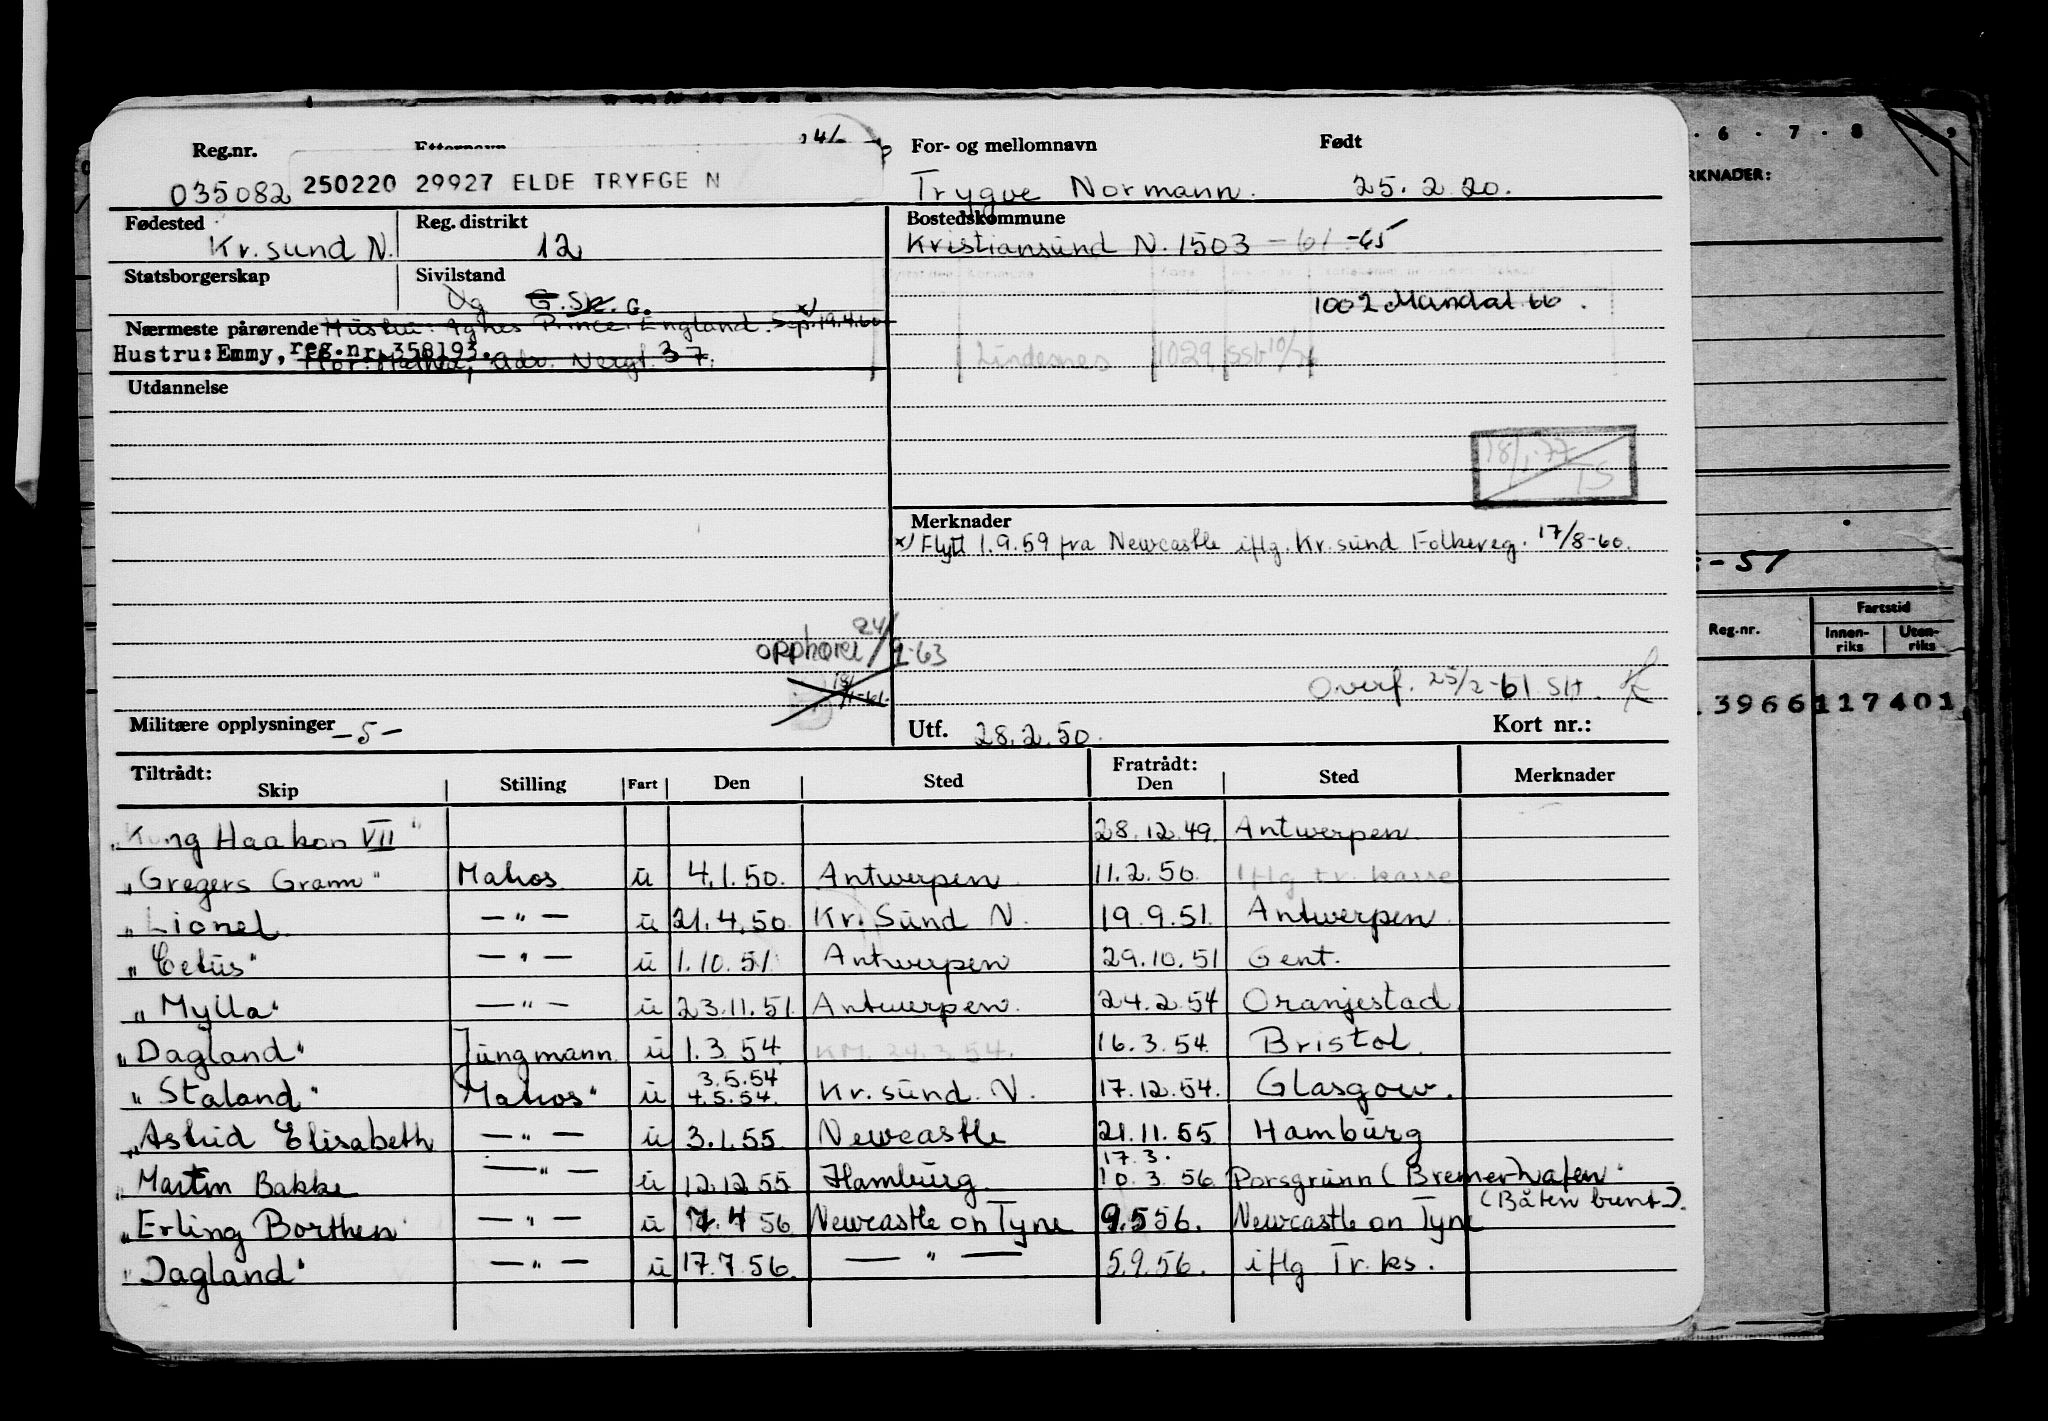 Reg.nr. Etternavn For- og mellomnavn Født
035082 250220 29927 ELDE TRYFGE N Trygve Normann. 25.2.20.
Fødested Reg. distrikt Bostedskommune
Kr.sund N. 12 Kristiansund N. 1503 - 61 -65
Statsborgerskap Sivilstand
Ug G. Sk. G. 1002 Mandal 66.
Nærmeste pårørende Hustru: Agnes Prince England. Sep. 19.4.60 x)
Hustru: Emmy, reg.nr. 358193. Adr. Nergt. 37.
Lindesnes 1029
Utdannelse
18/1-77 TS
Merknader
x) Flytt 1.9.59 fra Newcastle iflg. Kr.sund Folkereg. 17/8-60.
: - 51
Fartstid
Reg.nr. Innen-riks Uten-riks
opphøret 24/1-63
Overf. 25/2-61 SH.
3966117401
Militære opplysninger -5- Utf. 28.2.50. Kort nr.:
Tiltrådt: Fratrådt:
Skip Stilling Fart Den Sted Den Sted Merknader
"Kong Haakon VII" 28.12.49. Antwerpen.
"Gregers Gram" Matros u 4.1.50. Antwerpen 11.2.50. iflg tr. kasse
"Lionel - " - u 21.4.50 Kr. Sund N. 19.9.51. Antwerpen.
"Cetus" - " - u 1.10.51 Antwerpen 29.10.51 Gent.
"Mylla" - " - u 23.11.51. Antwerpen. 24.2.54 Oranjestad.
"Dagland" Jungmann u 1.3.54 KM. 24.3.54. 16.3.54. Bristol.
3.5.54
"Staland" Matros" u 4.5.54. Kr.sund. N. 17.12.54. Glasgow.
"Astrid Elisabeth - " - u 3.1.55 Newcastle 21.11.55 Hamburg
17.3.
"Martin Bakke - " - u 12.12.55 Hamburg. 10.3.56 Porsgrunn (Bremerhafen"
(Båten brent).
"Erling Borthen - " - u 7.4 56 Newcastle on Tyne 9.5 56. Newcastle on Tyne
"Dagland" - " - u 17.7.56. - " - 5.9.56. iflg Tr.ks.
6 . 7 . 8 . 9
RKNADER: